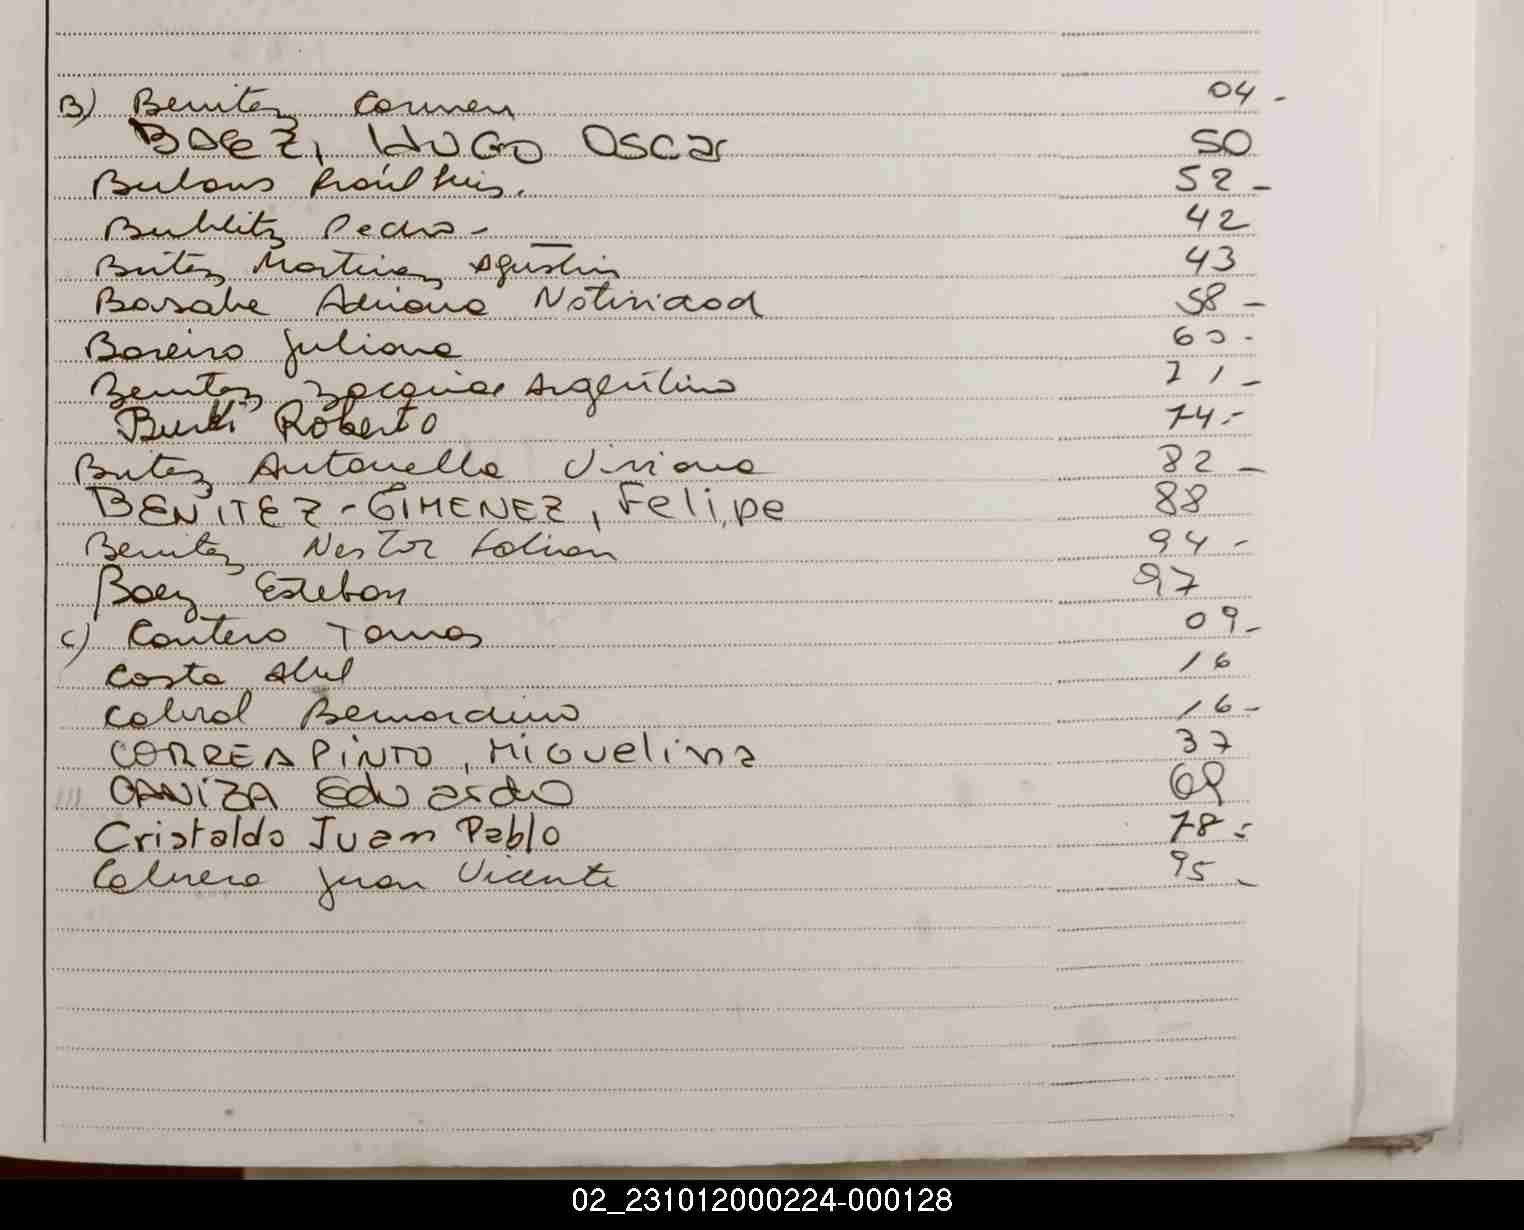 B) Benitez Carmen 04-
BAEZ, HUGO OSCAR 50
Raúl Luis. 52-
Bublitz Pedro- 42
Britez Martinez Agustin 43
Basabe Adriana Natividad 58-
Bareiro Juliana 60-
Benitez Argentino 71-
Burki Roberto 74.-
Britez Antonella Viviana 82-
BENITEZ-GIMENEZ, Felipe 88
Benitez Nestor Fabian 94-
Baez Esteban 97
C) Cantero Tomas 09-
Costa Abel 16
Cabral Bernardino 16-
CORREA PINTO, Miguelina 37
CANIZA Eduardo 69
Cristaldo Juan Pablo 78.-
Cabrera Juan Vicente 95-
02_231012000224-000128